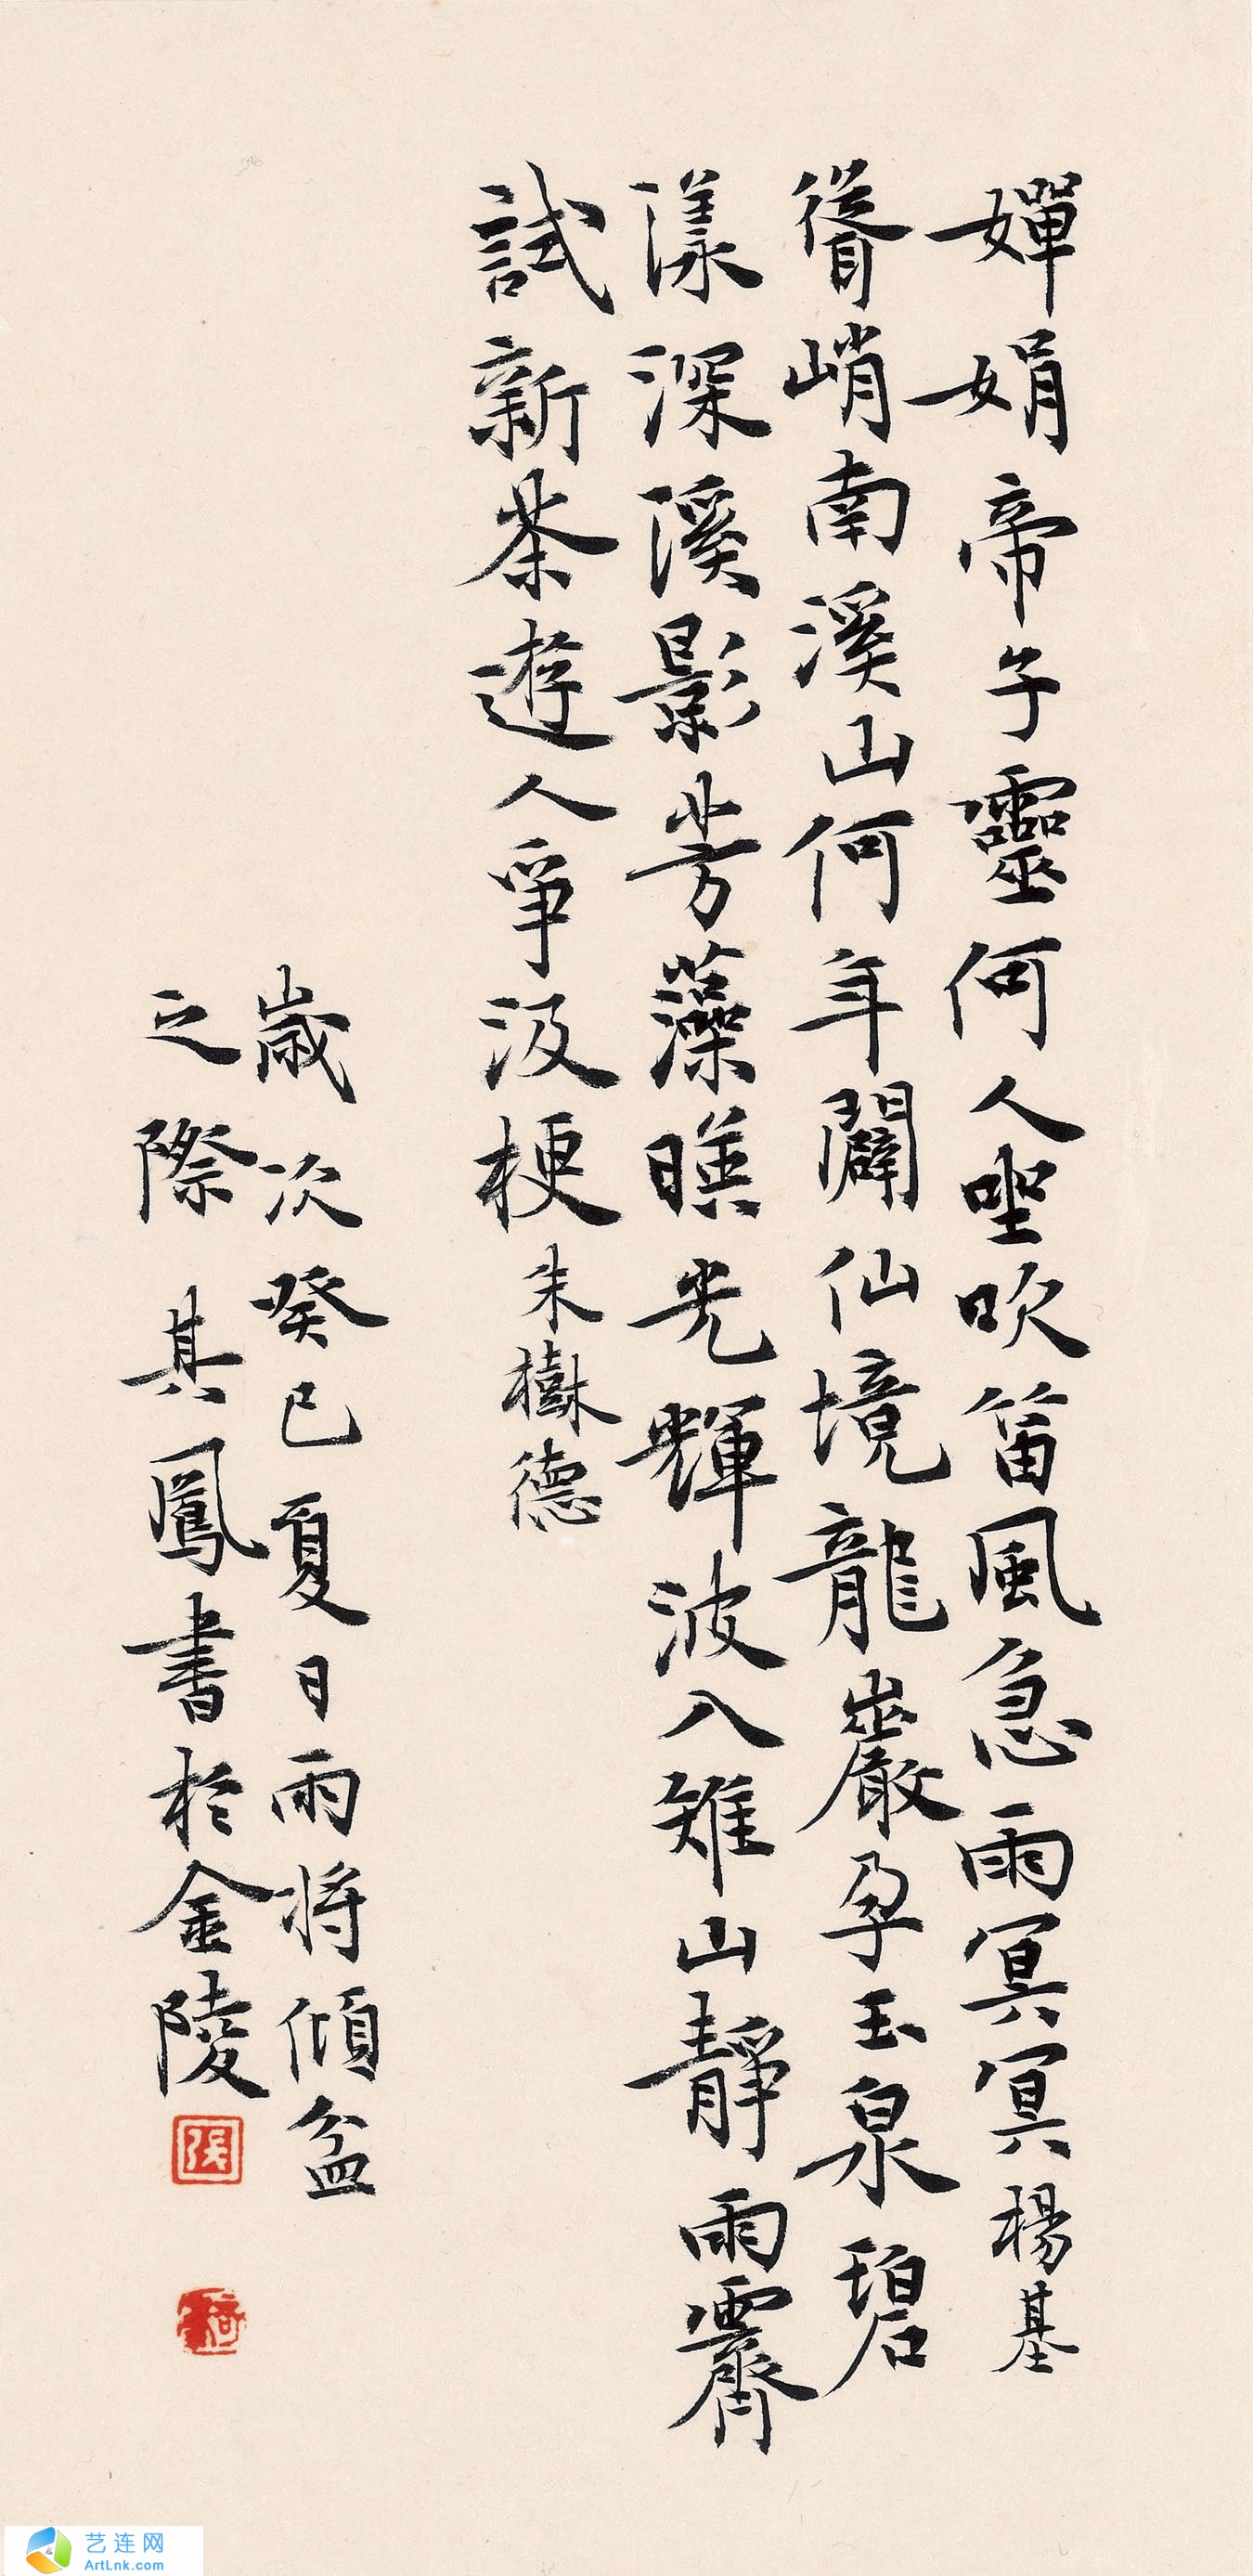 嬋娟帝子靈何人坐吹笛風急雨冥冥楊基
聳峭南溪山何年闢仙境龍巖孕玉泉碧
漾深溪影芳藻暎光輝波入雉山靜雨霽
試新茶遊人爭汲梗朱樹德
歲次癸巳夏日雨将傾盆
之際其鳳書於金陵
張
艺连网
ArtLnk.com